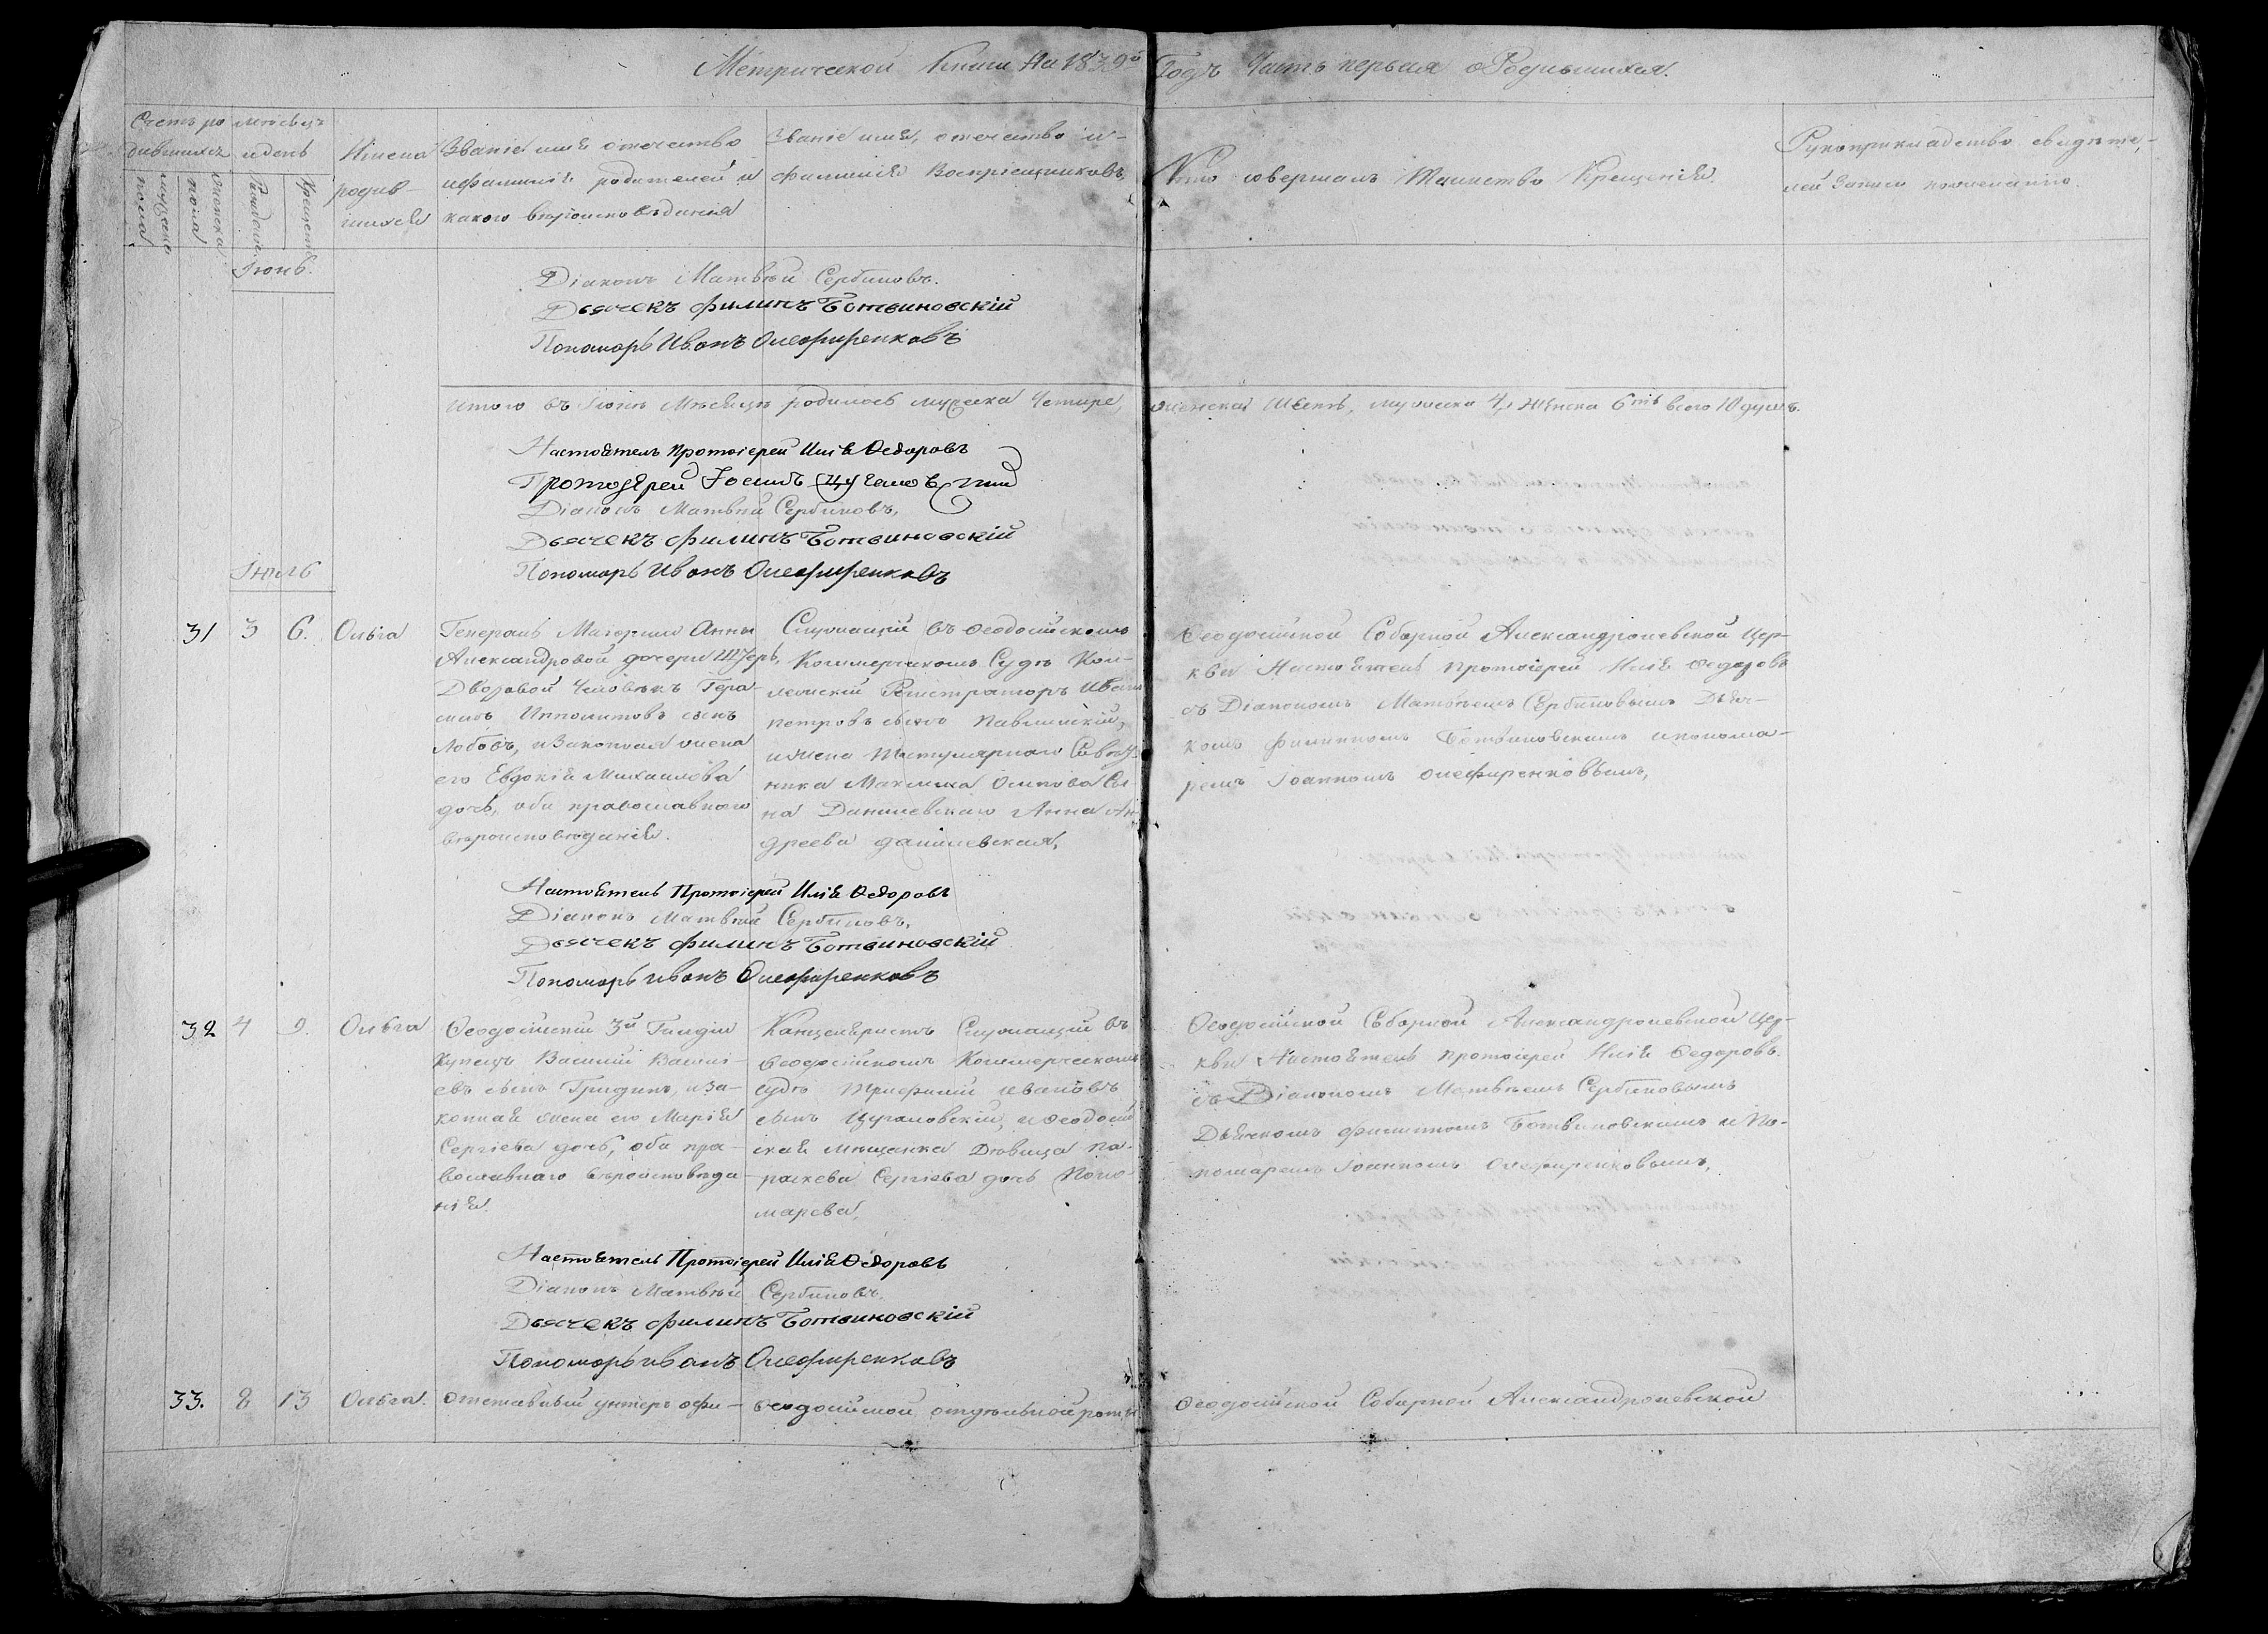 Метрической Книги На 1839й Годъ Часть первая о Родившихся.
Счетъ родившихся
мужеска пола
женска пола
Месяцъ и день
Рожденіе
Крещеніе
Имена родившихся
Званіе имя отечество
и фамилія родителей и
какого вероисповеданія
Званіе имя, отечество и
фамилія Воспріемниковъ
Кто совершалъ Таинство Крещенія.
Рукоприкладство свидете-
лей записи по желанію.
Іюнь.
Діаконъ Матвей Сербиновъ.
Дьячекъ Филипъ Ботвиновскій
Пономарь Иванъ Олефиренковъ
Итого въ Іюне Месяце родилось мужеска Четыре, женска Шесть, мужеска 4, женска 6ть всего 10 душъ.
Настоятель Протоіерей Илія Федоровъ
Протоіерей
Діаконъ Матвей Сербиновъ,
Дьячекъ Филипъ Ботвиновскій
Пономарь Иванъ Олефиренковъ
Іюль
31 3 6. Ольга
Генералъ Маіорши Анны
Александровой дочери
Дворовой Человекъ Гера-
симъ Ипполитовъ сынъ
Лобовъ, и Законная жена
его Евдокія Михаилова
дочь, оба православнаго
вероисповеданія.
Служащій въ Феодосійскомъ
Коммерческомъ Суде Кол-
лежскій Регистраторъ Иванъ
Петровъ сынъ Павлицкій,
и жена Титулярнаго Совет-
ника Максима Осипова Сы
на Данилевскаго Анна Ан
дреева Данилевская,
Феодосійской Соборной Александроневской Цер-
кви Настоятель Протоіерей Илія Федоровъ
съ Діакономъ Матвеемъ Сербиновымъ Дьяч-
комъ Филиппомъ Ботвиновскимъ и понома-
ремъ Іоанномъ Олефиренковымъ,
Настоятель Протоіерей Илія Федоровъ
Діаконъ Матвей Сербиновъ,
Дьячекъ Филипъ Ботвиновскій
Пономарь Иванъ Олефиренковъ
32 4 9. Ольга
Феодосійскій 3й Гильдіи
Купецъ Василій Василі-
евъ сынъ Гридинъ, и за-
конная жена его Марія
Сергіева дочь, оба пра-
вославнаго вероисповеда
нія.
Канцеляристъ Служащій въ
Феодосійскомъ Коммерческомъ
Суде Трифилій Ивановъ
сынъ и Феодосій
ская мещанка Девица Па-
раскева Сергіева дочь Поно-
марева,
Феодосійской Соборной Александроневской Цер-
кви Настоятель Протоіерей Илія Федоровъ.
съ Діакономъ Матвеемъ Сербиновымъ
Дьячкомъ Филиппомъ Ботвиновскимъ и По-
номаремъ Іоанномъ Олефиренковымъ,
Настоятель Протоіерей Илія Федоровъ
Діаконъ Матвей Сербиновъ.
Дьячекъ Филипъ Ботвиновскій
Пономарь Иванъ Олефиренковъ
33. 8 13 Ольга.
Отставный унтеръ офи-
Феодосійской отдельной роты
Феодосійской Соборной Александроневской